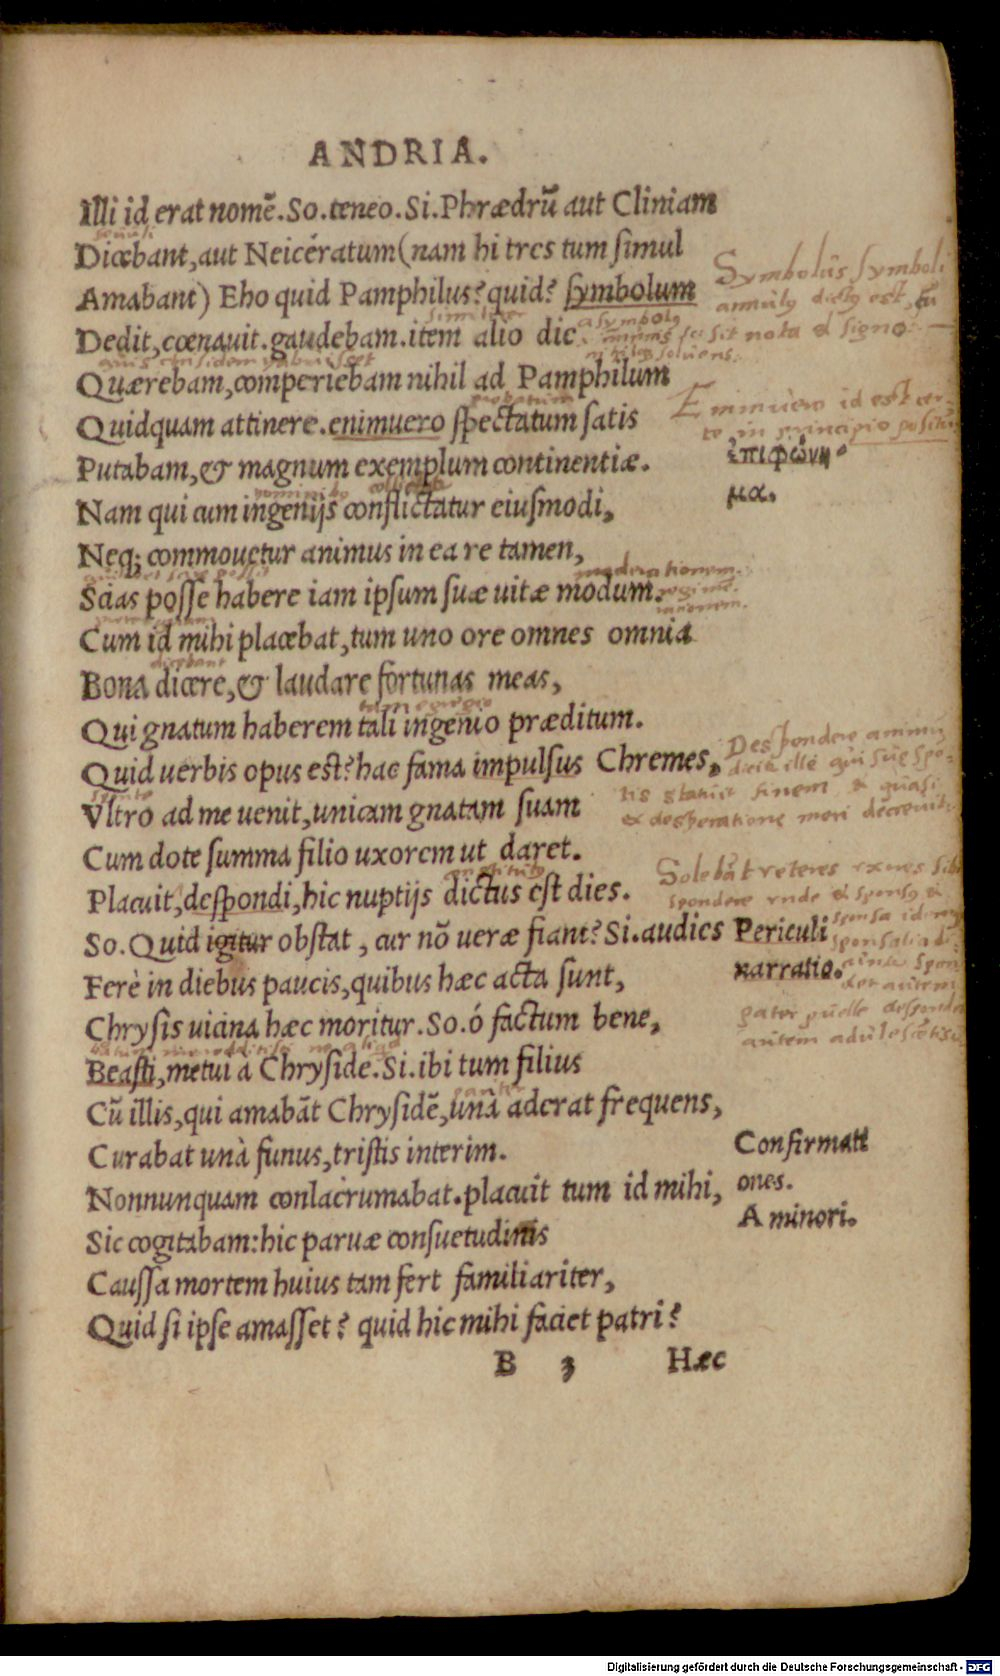 ANDRIA.
Illi id erat nomē. So. teneo. Si. Phrædrū aut Cliniam
Dicebant, aut Neicératum (nam hi tres tum simul
Amabant) Eho quid Pamphilus? quid? symbolum
Symbolus symboli
annulus dictus est, cū
Dedit, cœnauit. gaudebam. item alio die
asymbolus
sit nota et signo
Quærebam, comperiebam nihil ad Pamphilum
Quidquam attinere. enimuero spectatum satis
probatum
Enimuero id est cer-
te, in principio positū
Putabam, & magnum exemplum continentiæ.
ἐπιφώνη-
μα.
Nam qui cum ingenijs conflictatur eiusmodi,
Neq; commouetur animus in ea re tamen,
Scias posse habere iam ipsum suæ uitæ modum.
moderationem.
Cum id mihi placebat, tum uno ore omnes omnia
Bona dicere, & laudare fortunas meas,
dicebant
Qui gnatum haberem tali ingenio præditum.
tam egregio
Quid uerbis opus est? hac fama impulsus Chremes,
Despondere animum
dicit ille qui suę spe-
Vltro ad me uenit, unicam gnatam suam
sponte
tis statuit finem et quasi
et desperatione mori decreuit
Cum dote summa filio uxorem ut daret.
Placuit, despondi, hic nuptijs dictus est dies.
constitutus
Solebāt veteres
spondere
So. Quid igitur obstat, cur nō ueræ fiant? Si. audies
Periculi
narratio.
sponsa
sponsalia
Ferè in diebus paucis, quibus hæc acta sunt,
Chrysis uicina hæc moritur. So. ó factum bene,
pater puelle
autem adulescētis
Beasti, metui à Chryside. Si. ibi tum filius
Cū illis, qui amabāt Chrysidē, unà aderat frequens,
pariter
Curabat unà funus, tristis interim.
Confirmati
ones.
A minori.
Nonnunquam conlacrumabat. placuit tum id mihi,
Sic cogitabam: hic paruæ consuetudinis
Caussa mortem huius tam fert familiariter,
Quid si ipse amasset? quid hic mihi faciet patri?
B 3 Hæc
Digitalisierung gefördert durch die Deutsche Forschungsgemeinschaft - DFG